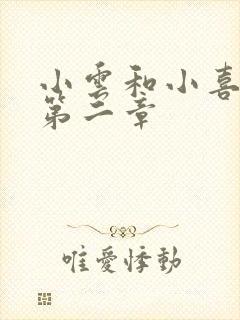 小雲和小喜
第二章
唯愛悸動